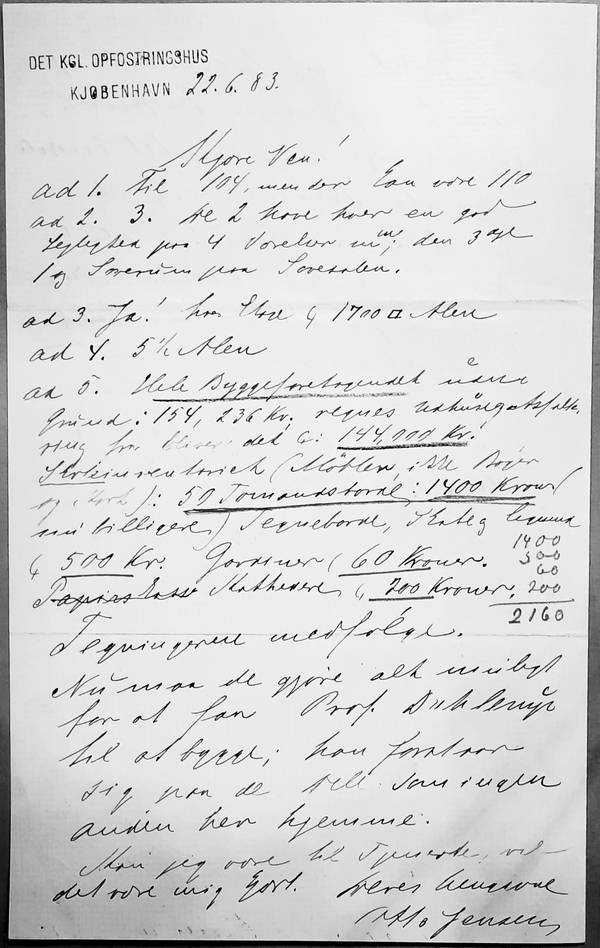 DET KGL. OPFOSTRINGSHUS
KJØBENHAVN 22.6.83.
Kjære Ven!
ad 1. Til 104, men der kan være 110
ad 2. 3. De 2 have hver en god
Leilighed paa 4 Værelser den 3die
1 og Soverum paa Sovesalen.
ad 3. Ja! hver 1700 □ Alen
ad 4. 5½ Alen
ad 5. Hele Byggeforetagendet uden
Grund: 154,236 Kr. regnes
ring fra bliver det c: 144,000 Kr.
Skoleinventariet (Møbler, ikke Bøger
og Kort): 50 Tomandsborde: 1400 Kroner (
nu billigere) Tegneborde,
500 Kr. Gardiner 60 Kroner.
Kathedere 200 Kroner.
1400
500
60
200
2160
Tegningerne medfølge.
Nu maa de gjøre alt muligt
for at faa Prof. Dahlerup
til at bygge; han forstaar
sig paa de Dele som ingen
anden her hjemme.
Kan jeg være til Tjeneste, vil
det være mig kjært. Deres hengivne
Otto Jensen